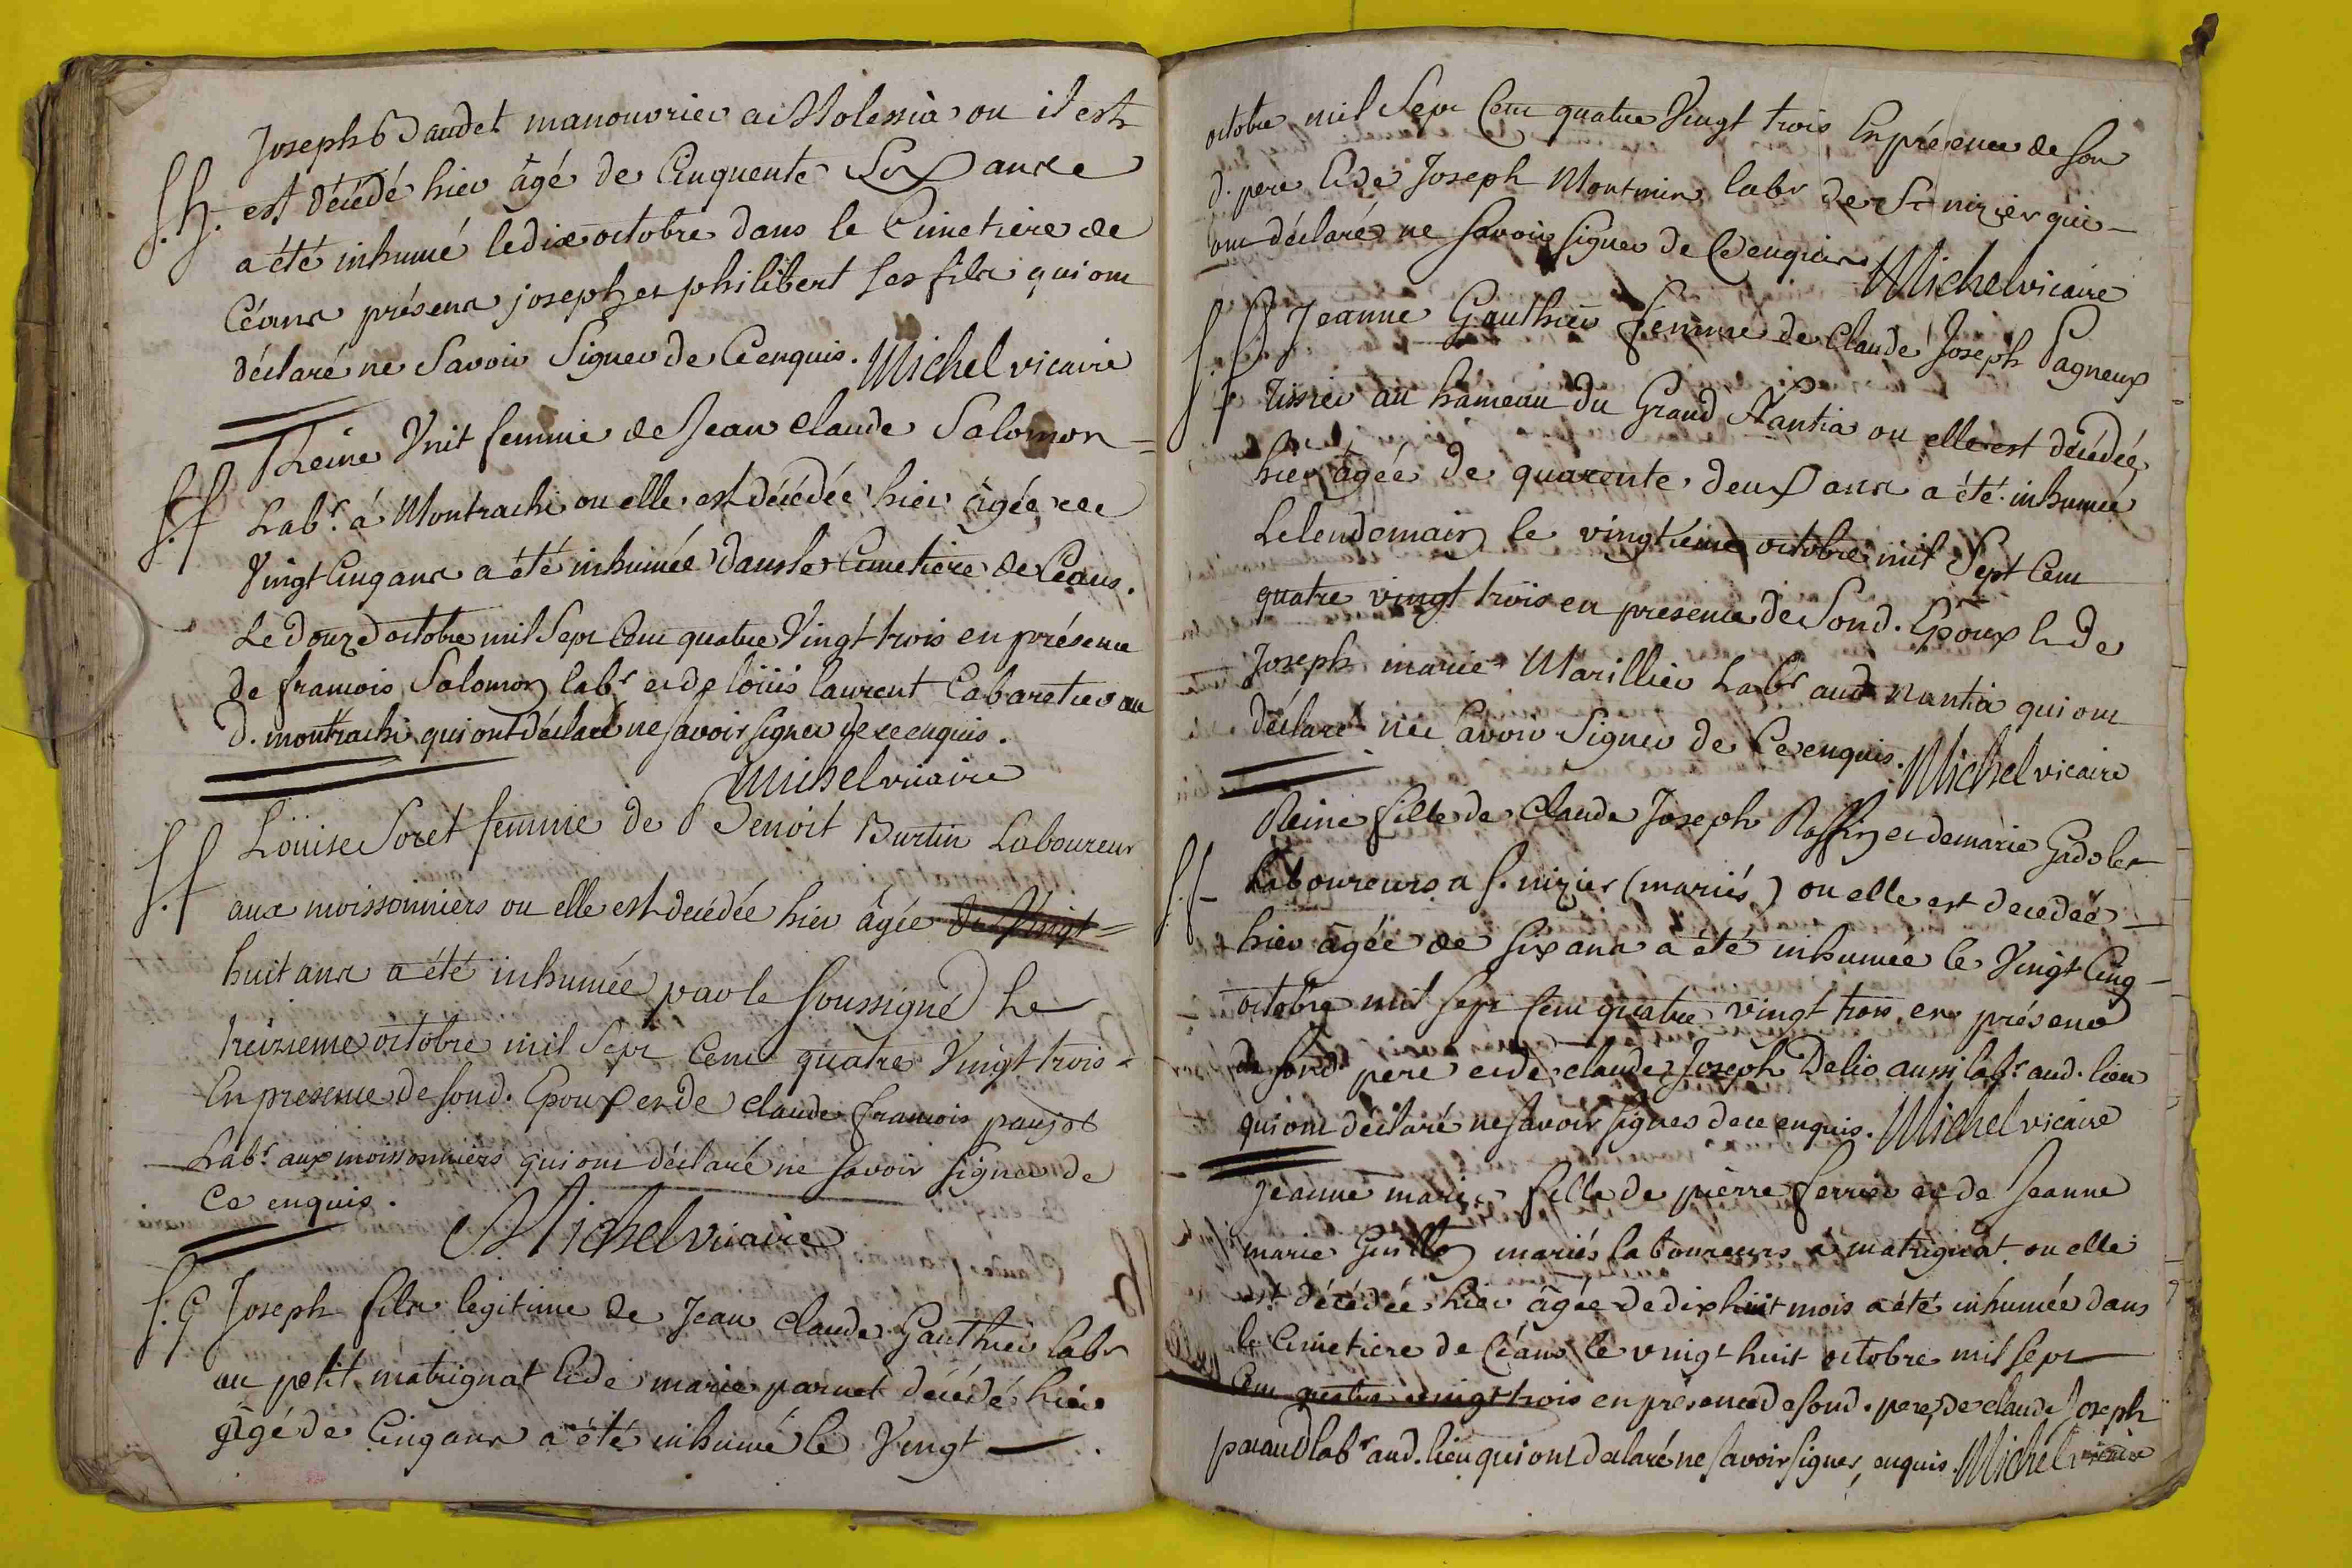 Joseph Baudet manouvrier a Molessia ou il est
S. h. est décédé hier âgé de Cinquente Six ans
a été inhumé le dix octobre dans le Cimetiere de
Céans présens joseph et philibert ses fils qui ont
déclaré ne Savoir Signer de Ce enquis. Michel vicaire
Reine Vuit femme de Jean Claude Salomon =
S. f Lab.r á Montrachi ou elle est décédée hier âgée de
Vingt Cinq ans a été inhumée dans le Cimetiere de Céans.
Le douze octobre mil Sept Cent quatre Vingt trois en présence
de francois Salomon lab.r et de loüis laurent Cabaretier au
d. montrachi qui ont déclaré ne savoir signer de ce enquis.
Michel vicaire
S. f Loüise Soret femme de Benoit Burtin Laboureur
aux moissonniers ou elle est decédée hier âgée de Vingt =
huit ans a été inhumée par le soussigné le
treizieme octobre mil Sept Cent quatre Vingt trois =
En presence de sond. Epoux et de claude francois paujot
Lab.r aux moissonniers qui ont déclaré ne savoir signer de
Ce enquis.
Michel vicaire
S. G Joseph fils legitime de Jean Claude Gauthier labr
au petit matrignat et de marie parnet décédé hier
âgé de Cinq ans a été inhumé le Vingt
octobre mil Sept Cent quatre Vingt trois En présence de son
d. pere et de Joseph Montmin labr de St nizier qui
ont déclaré ne Savoir signer de Ce enquis. Michel vicaire
S. f Jeanne Gauthier femme de Claude Joseph Pagneux
tissier au hameau du Grand Nantia ou elle est décédée
hier âgée de quarente deux ans a été inhumée
Le lendemain le vingtieme octobre mil Sept Cent
quatre vingt trois en presence de Sond. Epoux et de
Joseph marie Marillier Labr aud nantia qui ont
déclaré ne Savoir Signer de Ce enquis. Michel vicaire
Reine fille de Claude Joseph Roffin et de marie Gadolet
S. f Laboureurs a S. nizier (mariés) ou elle est decedée
hier âgée de six ans a été inhumée le Vingt Cinq
octobre mil sept Cent quatre vingt trois en présence
de sond. pere et de claude Joseph Delio aussi labr aud. lieu
qui ont déclaré ne savoir signer de ce enquis. Michel vicaire
Jeanne marie fille de pierre ferrier et de Jeanne
marie Guillot mariés laboureurs á matrignat ou elle
est décédée hier âgée de dix huit mois a été inhumée dans
le Cimetiere de Céans le vingt huit octobre mil sept
Cent quatre vingt trois en présence de sond. pere, de claude Joseph
paraud labr aud. lieu qui ont declaré ne savoir signer, enquis. Michel vicaire